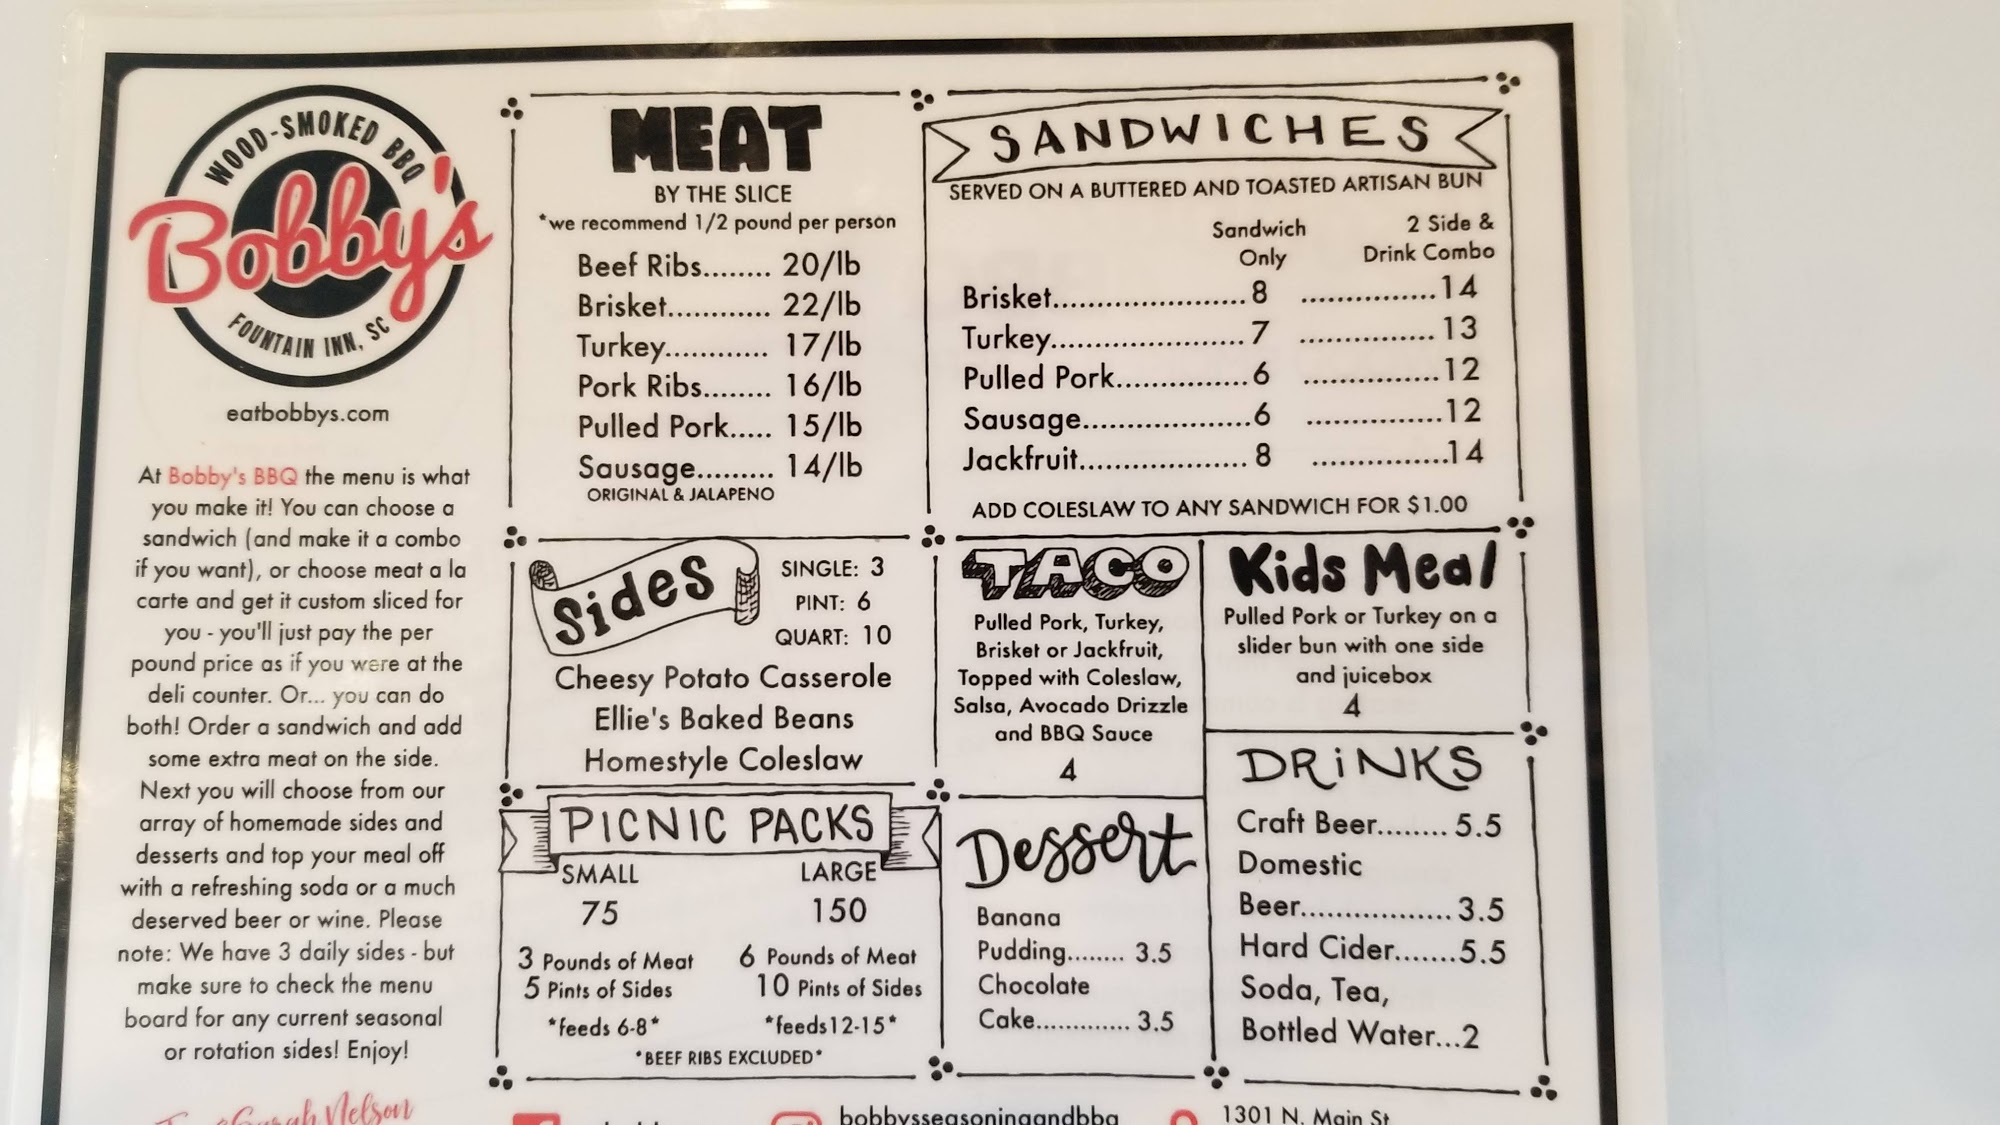 WOOD-SMOKED BBQ
Bobby's
FOUNTAIN INN, SC
eatbobbys.com
At Bobby's BBQ the menu is what
you make it! You can choose a
sandwich (and make it a combo
if you want), or choose meat a la
carte and get it custom sliced for
you - you'll just pay the per
pound price as if you were at the
deli counter. Or... you can do
both! Order a sandwich and add
some extra meat on the side.
Next you will choose from our
array of homemade sides and
desserts and top your meal off
with a refreshing soda or a much
deserved beer or wine. Please
note: We have 3 daily sides - but
make sure to check the menu
board for any current seasonal
or rotation sides! Enjoy!
Nelson
MEAT
BY THE SLICE
*we recommend 1/2 pound per person
Beef Ribs........ 20/lb
Brisket............ 22/lb
Turkey............ 17/lb
Pork Ribs........ 16/lb
Pulled Pork..... 15/lb
Sausage......... 14/lb
ORIGINAL & JALAPENO
SANDWICHES
SERVED ON A BUTTERED AND TOASTED ARTISAN BUN
Sandwich Only
2 Side & Drink Combo
Brisket.......................8 ................14
Turkey.......................7 ................13
Pulled Pork................6 ................12
Sausage....................6 ................12
Jackfruit.................... 8 ................14
ADD COLESLAW TO ANY SANDWICH FOR $1.00
Sides
SINGLE: 3
PINT: 6
QUART: 10
Cheesy Potato Casserole
Ellie's Baked Beans
Homestyle Coleslaw
TACO
Pulled Pork, Turkey,
Brisket or Jackfruit,
Topped with Coleslaw,
Salsa, Avocado Drizzle
and BBQ Sauce
4
Kids Meal
Pulled Pork or Turkey on a
slider bun with one side
and juicebox
4
PICNIC PACKS
SMALL
75
3 Pounds of Meat
5 Pints of Sides
*feeds 6-8*
LARGE
150
6 Pounds of Meat
10 Pints of Sides
*feeds12-15*
*BEEF RIBS EXCLUDED*
Dessert
Banana
Pudding........ 3.5
Chocolate
Cake............. 3.5
DRiNKS
Craft Beer........ 5.5
Domestic
Beer..................3.5
Hard Cider.......5.5
Soda, Tea,
Bottled Water...2
bobbysseasoningandbbq
1301 N. Main St